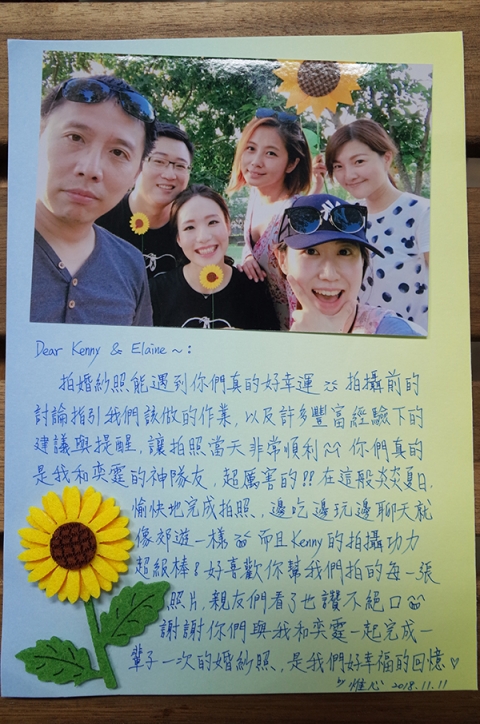 Dear Kenny & Elaine ~ :
拍婚紗照能遇到你們真的好幸運 拍攝前的
討論指引我們該做的作業, 以及許多豐富經驗下的
建議與提醒, 讓拍照當天非常順利^^ 你們真的
是我和奕霆的神隊友, 超厲害的!! 在這般炎炎夏日,
愉快地完成拍照, 邊吃邊玩邊聊天就
像郊遊一樣 而且Kenny的拍攝功力
超級棒! 好喜歡你幫我們拍的每一張
照片, 親友們看了也讚不絕口
謝謝你們與我和奕霆一起完成一
輩子一次的婚紗照, 是我們好幸福的回憶♡
惟心 2018.11.11